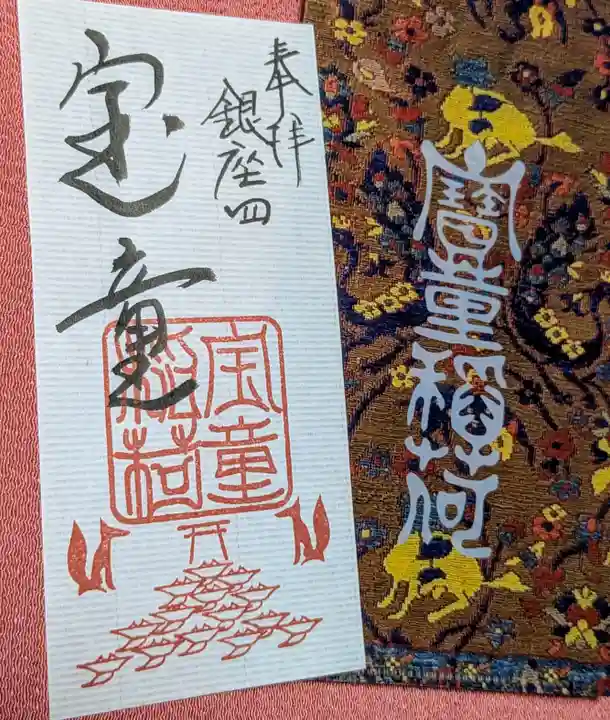 奉拝
銀座四
宝童
宝童
稲荷
寶童稲荷